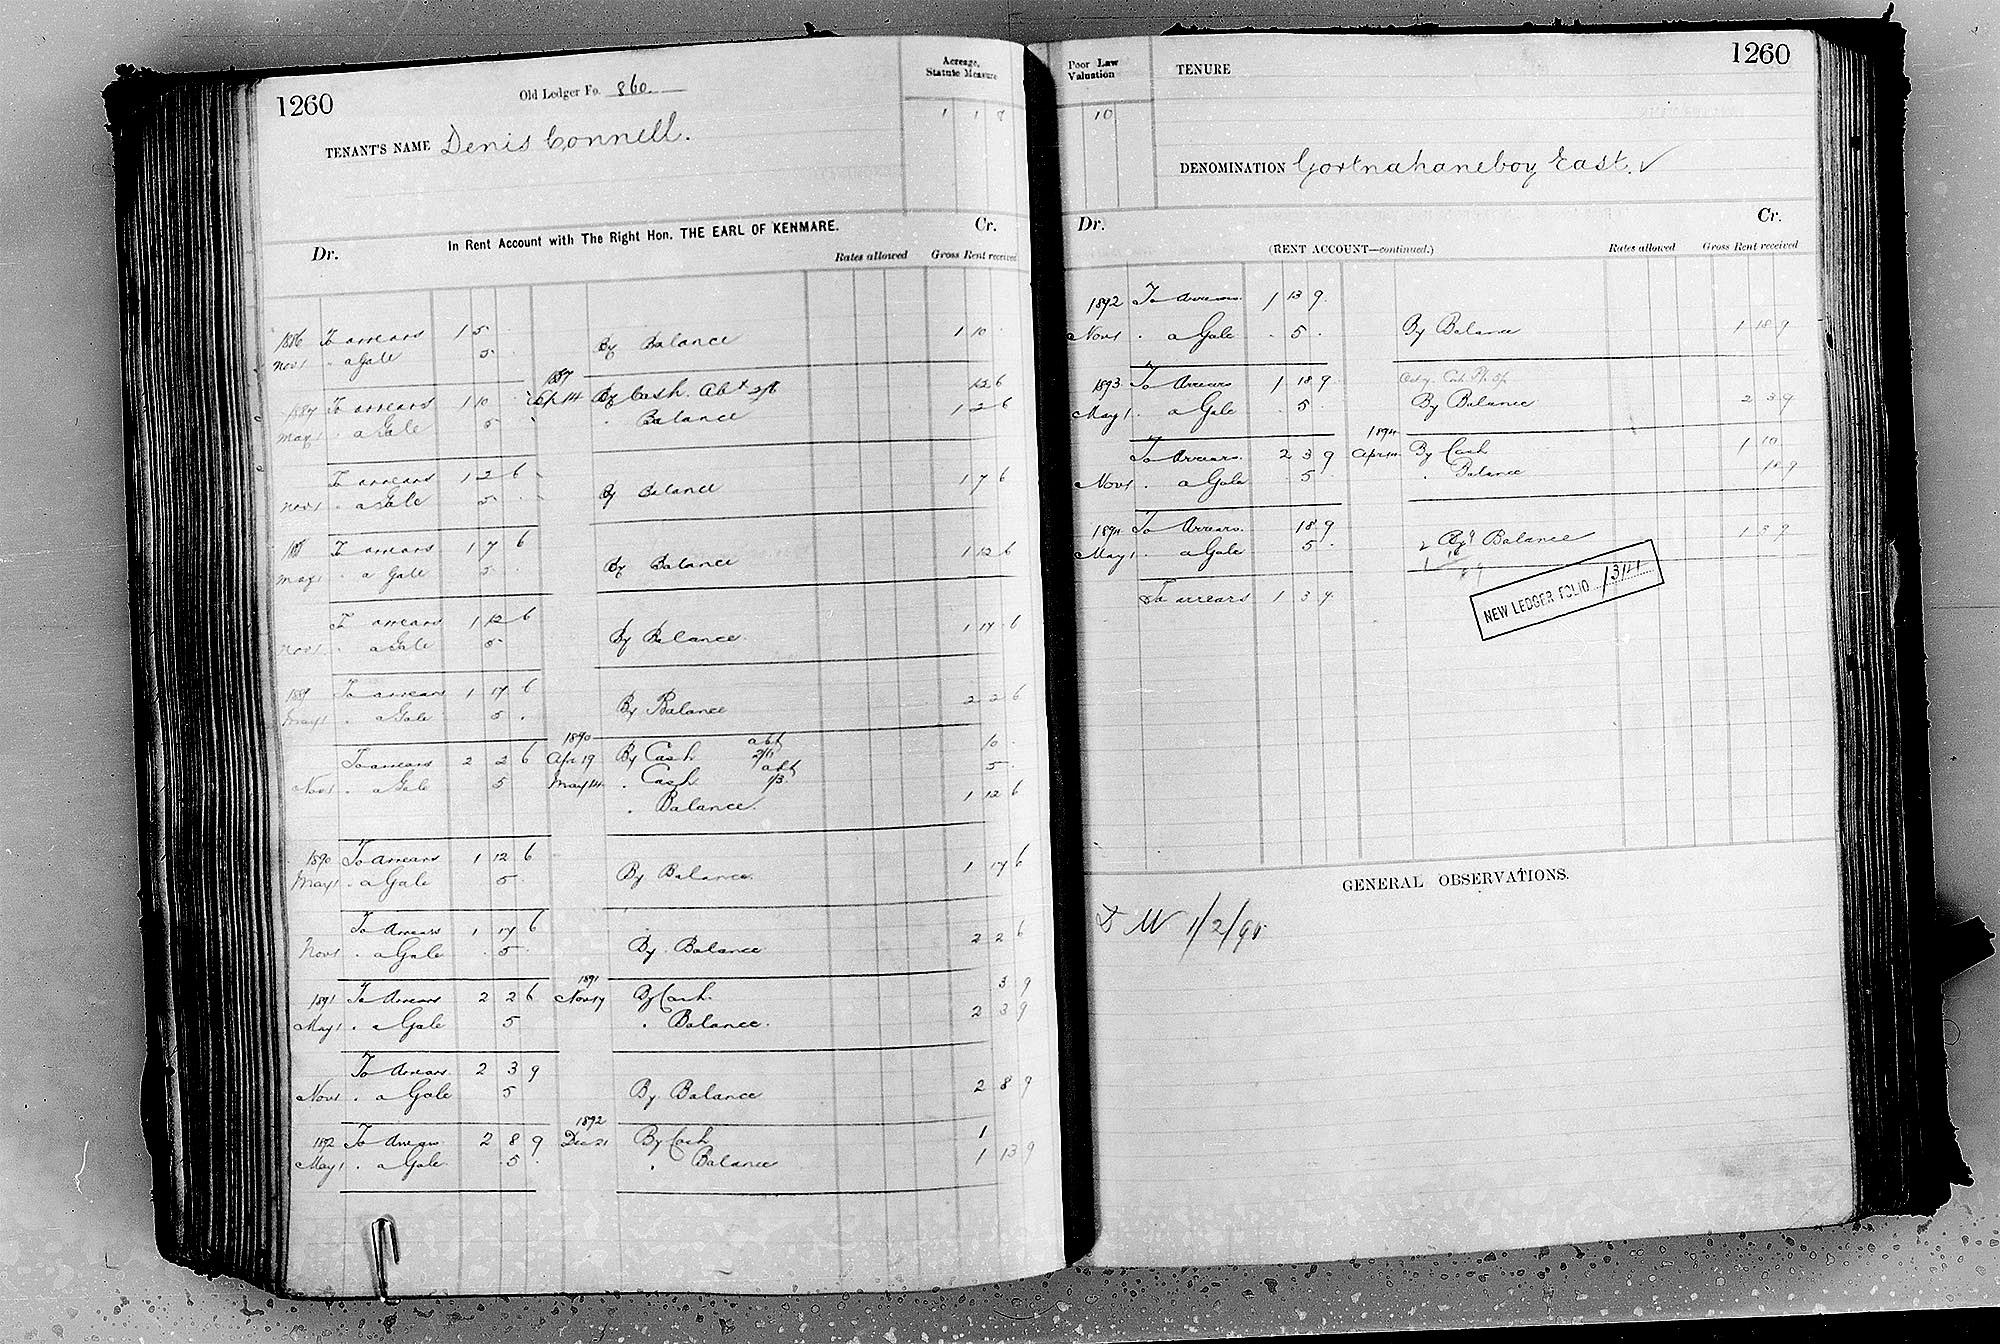 1260
Old Ledger Fo. 860
Acreage, Statute Measure
1 1 8
TENANT'S NAME Denis Connell.
In Rent Account with The Right Hon. THE EARL OF KENMARE.
Dr. Cr.
Rates allowed Gross Rent received
1886 To arrears 1 5 .
Nov 1 " a Gale 5 . By Balance 1 10 .
1887 To arrears 1 10 . 1887 Apr 14 By Cash Abt 2/6 12 6
May 1 " a Gale 5 . " Balance 1 2 6
To arrears 1 2 6
Nov 1 " a Gale 5 . By Balance 1 7 6
To arrears 1 7 6
May 1 " a Gale 5 . By Balance 1 12 6
To arrears 1 12 6
Nov 1 " a Gale 5 . By Balance 1 17 6
1889 To arrears 1 17 6
May 1 " a Gale 5 . By Balance 2 2 6
To arrears 2 2 6 1890 Apr 19 By Cash abt 2/6 10 .
Nov 1 " a Gale 5 May 14 " Cash abt 1/3 5 .
" Balance 1 12 6
1890 To Arrears 1 12 6
May 1 " a Gale 5 . By Balance 1 17 6
To Arrears 1 17 6
Nov 1 " a Gale 5 . By Balance 2 2 6
1891 To Arrears 2 2 6 1891 Nov 17 By Cash. 3 9
May 1 " a Gale 5 " Balance. 2 3 9
To Arrears 2 3 9
Nov 1 " a Gale 5 By Balance 2 8 9
1892 To Arrears 2 8 9 1892 Dec 21 By Cash 1
May 1 " a Gale 5 . " Balance 1 13 9
1260
Poor Law Valuation
10
TENURE
DENOMINATION Gortnahaneboy East. ✓
Dr. Cr.
(RENT ACCOUNT—continued.)
Rates allowed Gross Rent received
1892 To Arrears 1 13 9
Nov 1 " a Gale . 5 . By Balance 1 18 9
1893 To Arrears 1 18 9
May 1 " a Gale . 5 . By Balance 2 3 9
To Arrears 2 3 9 1894 Apr 14 By Cash 1 10
Nov 1 " a Gale . 5 . " Balance 18 9
1894 To Arrears 18 9
May 1 " a Gale 5 . By Balance 1 3 9
To arrears 1 3 9
NEW LEDGER FOLIO 1314
GENERAL OBSERVATIONS.
1/2/95